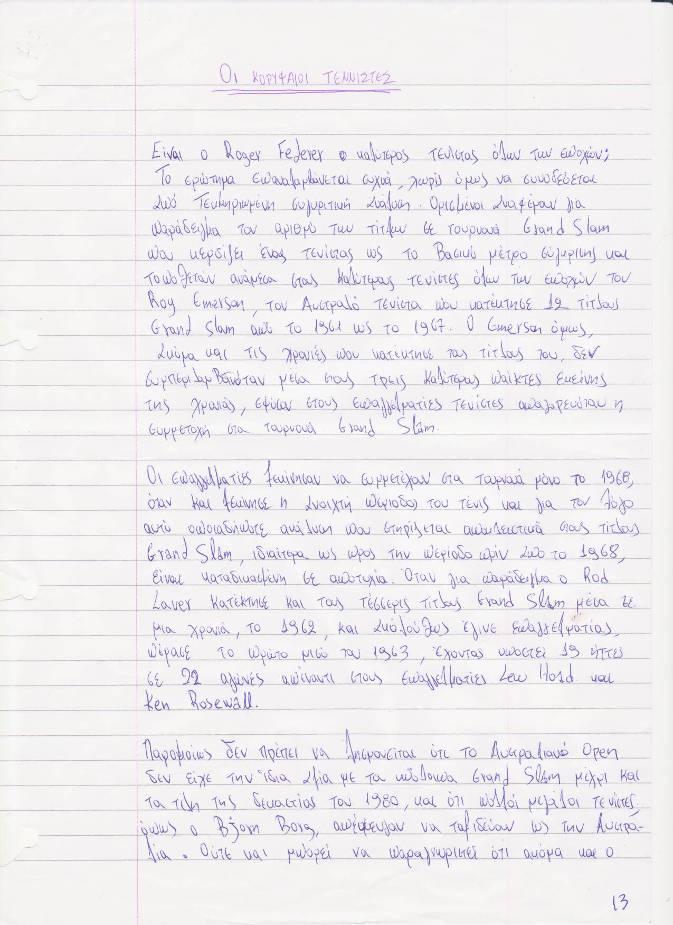 Οι κορυφαιοι τεννιστες
Είναι ο Roger Federer ο καλύτερος τενίστας όλων των εποχών;
Το ερώτημα επαναλαμβάνεται συχνά, χωρίς όμως να συνοδεύεται
από τεκμηριωμένη συγκριτική ανάλυση. Ορισμένοι αναφέρουν για
παράδειγμα τον αριθμό των τίτλων σε τουρνουά Grand Slam
που κερδίζει ένας τενίστας ως το βασικό μέτρο σύγκρισης και
τοποθετούν ανάμεσα στους καλύτερους τενίστες όλων των εποχών τον
Roy Emerson, τον Αυστραλό τενίστα που κατέκτησε 12 τίτλους
Grand Slam από το 1961 ως το 1967. Ο Emerson όμως,
ακόμα και τις χρονιές που κατέκτησε τους τίτλους του, δεν
συμπεριλαμβανόταν μέσα στους τρεις καλύτερους παίκτες εκείνης
της χρονιάς, εφόσον στους επαγγελματίες τενίστες απαγορευόταν η
συμμετοχή στα τουρνουά Grand Slam.
Οι επαγγελματίες ξεκίνησαν να συμμετέχουν στα τουρνουά μόνο το 1968,
όταν και ξεκίνησε η ανοιχτή περίοδος του τένις και για τον λόγο
αυτό οποιαδήποτε ανάλυση που στηρίζεται αποκλειστικά στους τίτλους
Grand Slam, ιδιαίτερα ως προς την περίοδο πριν από το 1968,
είναι καταδικασμένη σε αποτυχία. Όταν για παράδειγμα ο Rod
Laver κατέκτησε και τους τέσσερις τίτλους Grand Slam μέσα σε
μια χρονιά, το 1962, και ακολούθως έγινε επαγγελματίας,
πέρασε το πρώτο μισό του 1963, έχοντας υποστεί 19 ήττες
σε 22 αγώνες απέναντι στους επαγγελματίες Lew Hoad και
Ken Rosewall.
Παρομοίως δεν πρέπει να λησμονείται ότι το Αυστραλιανό Open
δεν είχε την ίδια αξία με τα υπόλοιπα Grand Slam μέχρι και
τα τέλη της δεκαετίας του 1980, και ότι πολλοί μεγάλοι τενίστες,
όπως ο Bjorn Borg, απέφευγαν να ταξιδεύουν ως την Αυστρα-
λία. Ούτε και μπορεί να παραγνωριστεί ότι ακόμα και ο
13